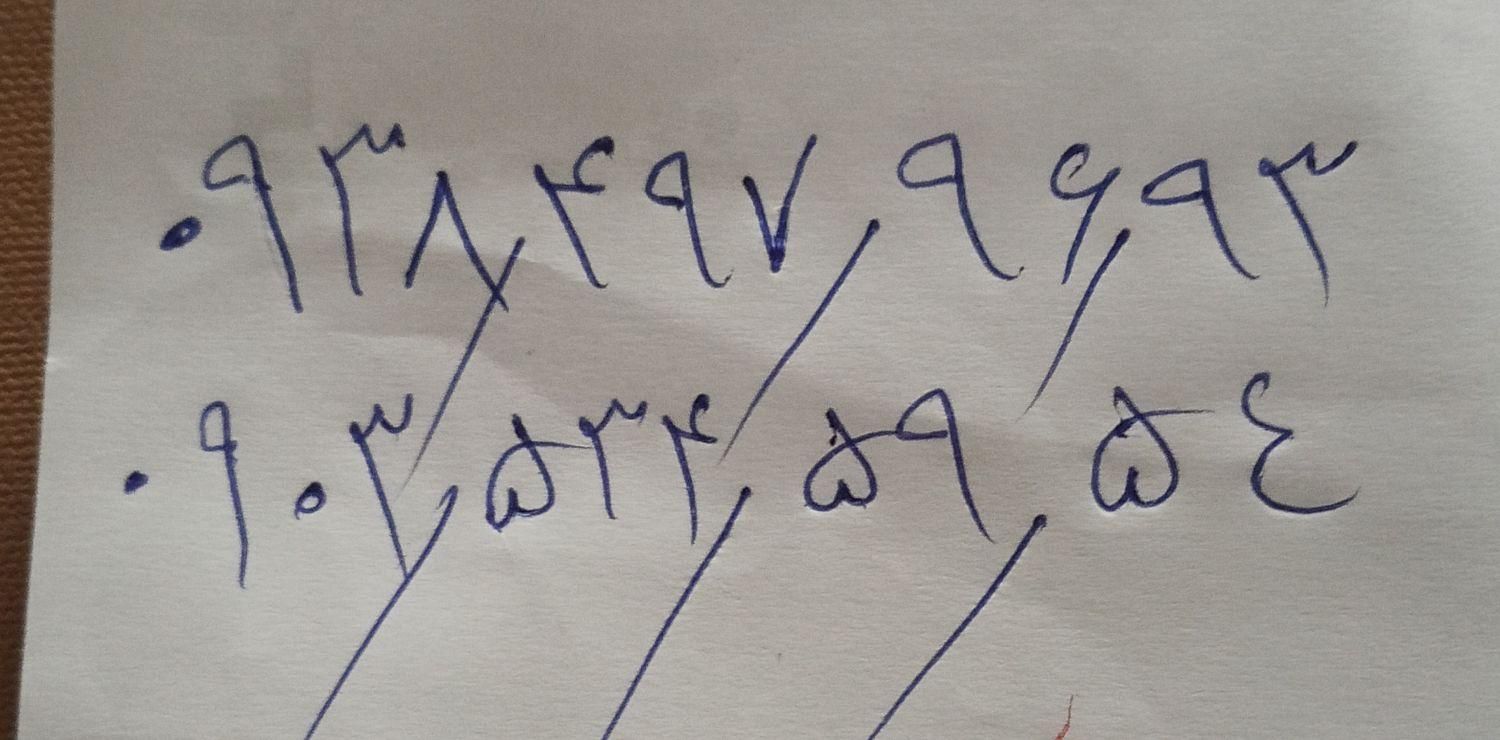 ۰۹۳۸/۴۹۷/۹۶/۹۳
۰۹۰۳/۵۳۴/۵۹/۵٤